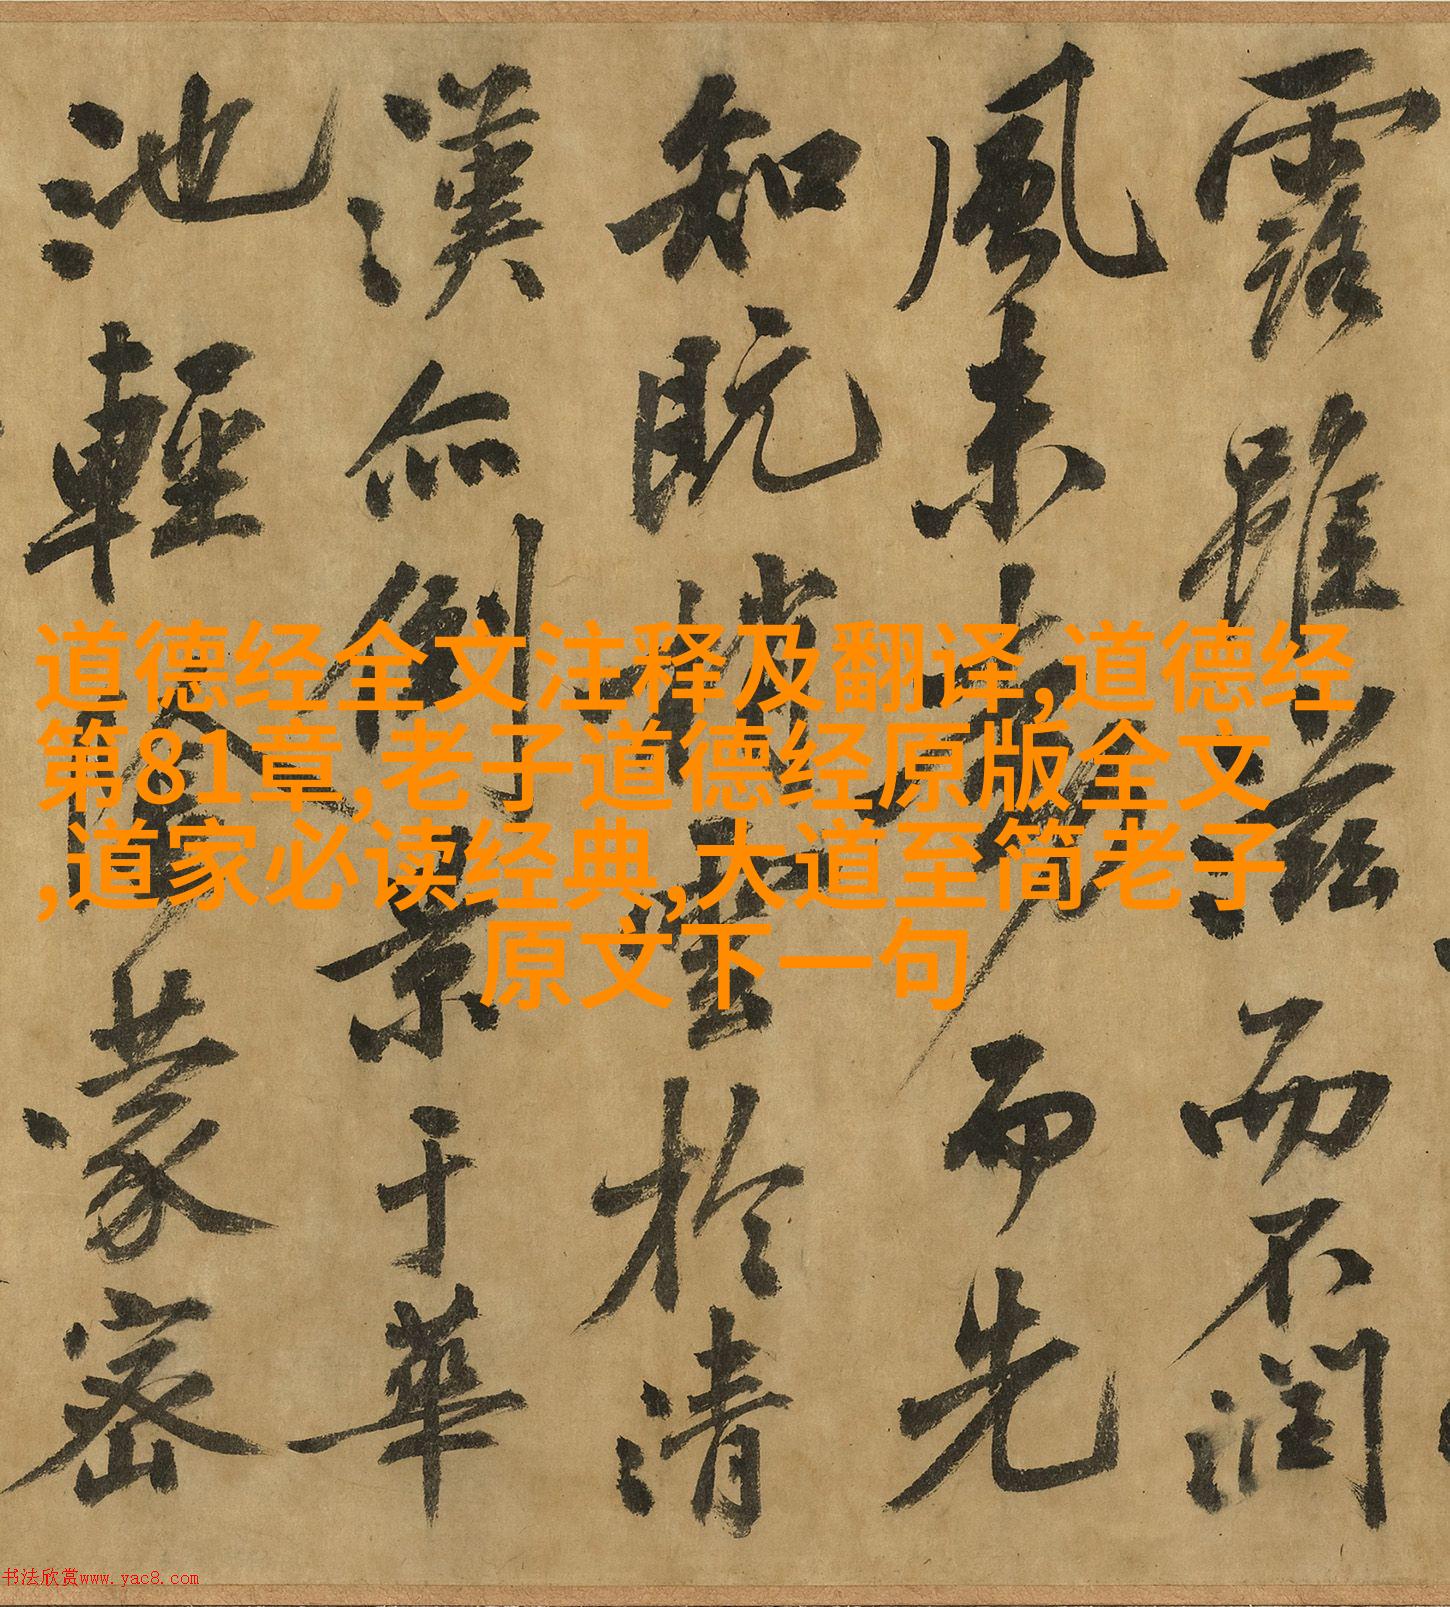 道德经全文注释及翻译,道德经
第81章,老子道德经原版全文
,道家必读经典,大道至简老子
原文下一句
露雖滋而不潤
風未動而先
知既雲於清
漢亦倒景于華
池輕陰蒙密
书法欣赏www.yac8.com